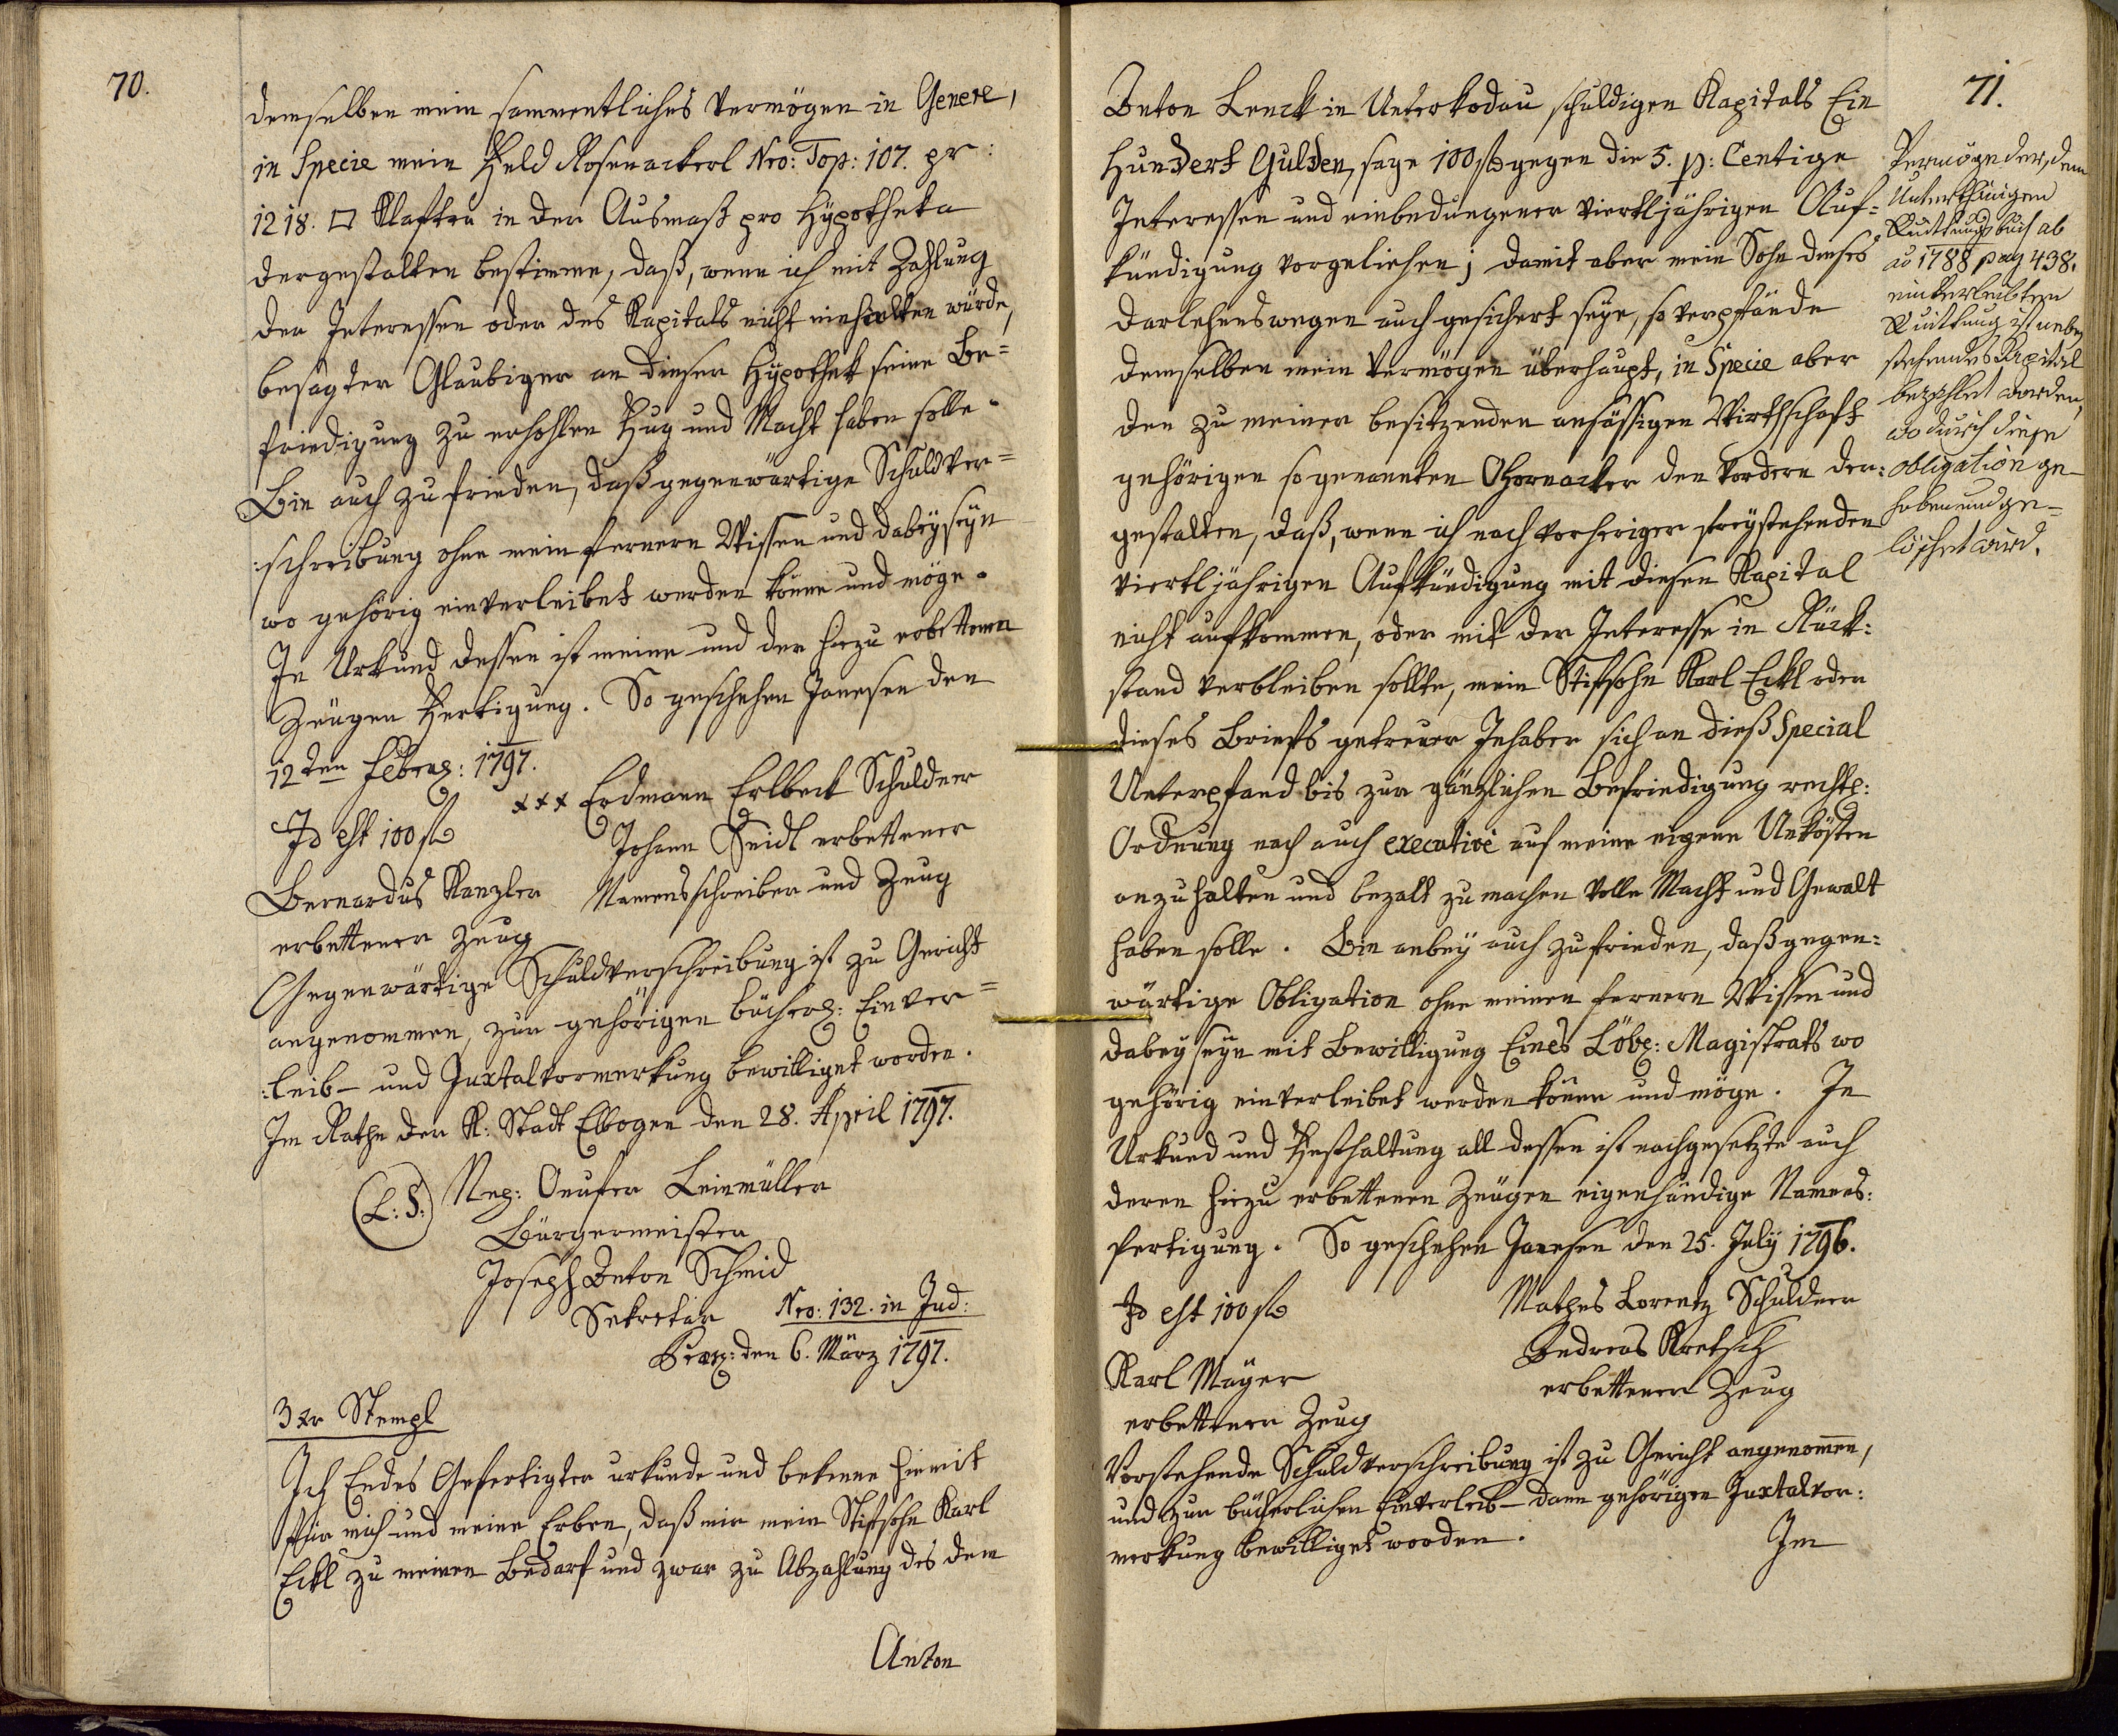 70.
demselben mein sammentliches Vermögen in Genere,
in Specie mein Feld Rosenackerl Nro: Top: 107. pr:
1218. □ Klafter in der Ausmaß pro Hÿpotheka
dergestalten bestimme, daß, wenn ich mit Zahlung
der Interessen oder des Kapitals nicht einhalten würde,
besagter Glaubiger an dieser Hÿpothek seine Be=
friedigung zu erhohlen Fug und Macht haben solle.
Bin auch zufrieden, daß gegenwärtige Schuldver=
:schreibung ohne mein fernern Wissen und dabeÿseÿn
wo gehörig einverleibet werden könne und möge.
In Urkund dessen ist meine und der hiezu erbettenen
Zeugen Fertigung. So geschehen Janesen den
12ten Februar: 1797.
Id est 100 f
xxx Erdmann Erlbeck Schuldner
Johann Seidl erbettener
Namensschreiber und Zeug
Bernardus Kanzler
erbettener Zeug
Gegenwärtige Schuldverschreibung ist zu Gericht
angenommen, zur gehörigen bücherl: Einver=
:leib- und Juxtalvormerkung bewilliget worden.
Im Rathe der K: Stadt Elbogen den 28. April 1797.
(L: S:) Onufer Leinmüller
Bürgermeister
Joseph Anton Schmid
Sekretär
Nro: 132. in Jud:
den 6. März 1797.
3 xr Stempl
Ich Endes Gefertigter urkunde und bekenne hiemit
für mich und meine Erben, daß mir mein Stifsohn Karl
Eckl zu meinen Bedarf und zwar zu Abzahlung des dem
Anton
71.
Anton Lenck in Unterkodau schuldigen Kapitals Ein
Hundert Gulden, sage 100 f gegen die 5. p: Centige
Interessen und einbedungener viertljährigen Auf=
kündigung vorgeliehen; damit aber mein Sohn dieses
darlehenswegen auch gesichert seÿe, so verpfände
demselben mein Vermögen überhaupt, in Specie aber
den zu meiner besitzenden ansässigen Wirthschaft
gehörigen sogenannten Ohornacker den vordern der:
gestalten, daß, wenn ich nach vorheriger freÿstehenden
viertljährigen Aufkündigung mit diesen Kapital
nicht aufkommen, oder mit der Interesse in Rück:
stand verbleiben sollte, mein Stifsohn Karl Eckl oder
dieses Briefs getreuer Inhaber sich an dieß Special
Unterpfand bis zur gänzlichen Befriedigung rechtl:
Ordnung nach auch executivé auf meine eigene Unkösten
anzuhalten und bezalt zu machen volle Macht und Gewalt
haben solle. Bin anbeÿ auch zufrieden, daß gegen:
wärtige Obligation ohne meinen fernern Wissen und
dabeÿseÿn mit Bewilligung Eines Löbl: Magistrats wo
gehörig einverleibet werden könne und möge. In
Urkund und Festhaltung all dessen ist nachgesetzte auch
deren hiezu erbettenen Zeugen eigenhändige Namens:
fertigung. So geschehen Janesen den 25. Julÿ 1796.
Id est 100 f
Mathes Lorentz Schuldner
Andreas Kretsch
erbettener Zeug
Karl Maÿer
erbettener Zeug
Vorstehende Schuldverschreibung ist zu Gericht angenommen,
und zur bücherlichen Einverleib- dann gehörigen Juxtalvor:
merkung bewilliget worden.
Im
Vermög der, dem
Unterthänigen
Quittungsbuch ab
ao 1788 pag 438.
einverleibten
Quittung ist neben
stehendes Kapital
bezahlet worden,
wodurch diese
obligation ge-
hoben und ge-
löschet wird.